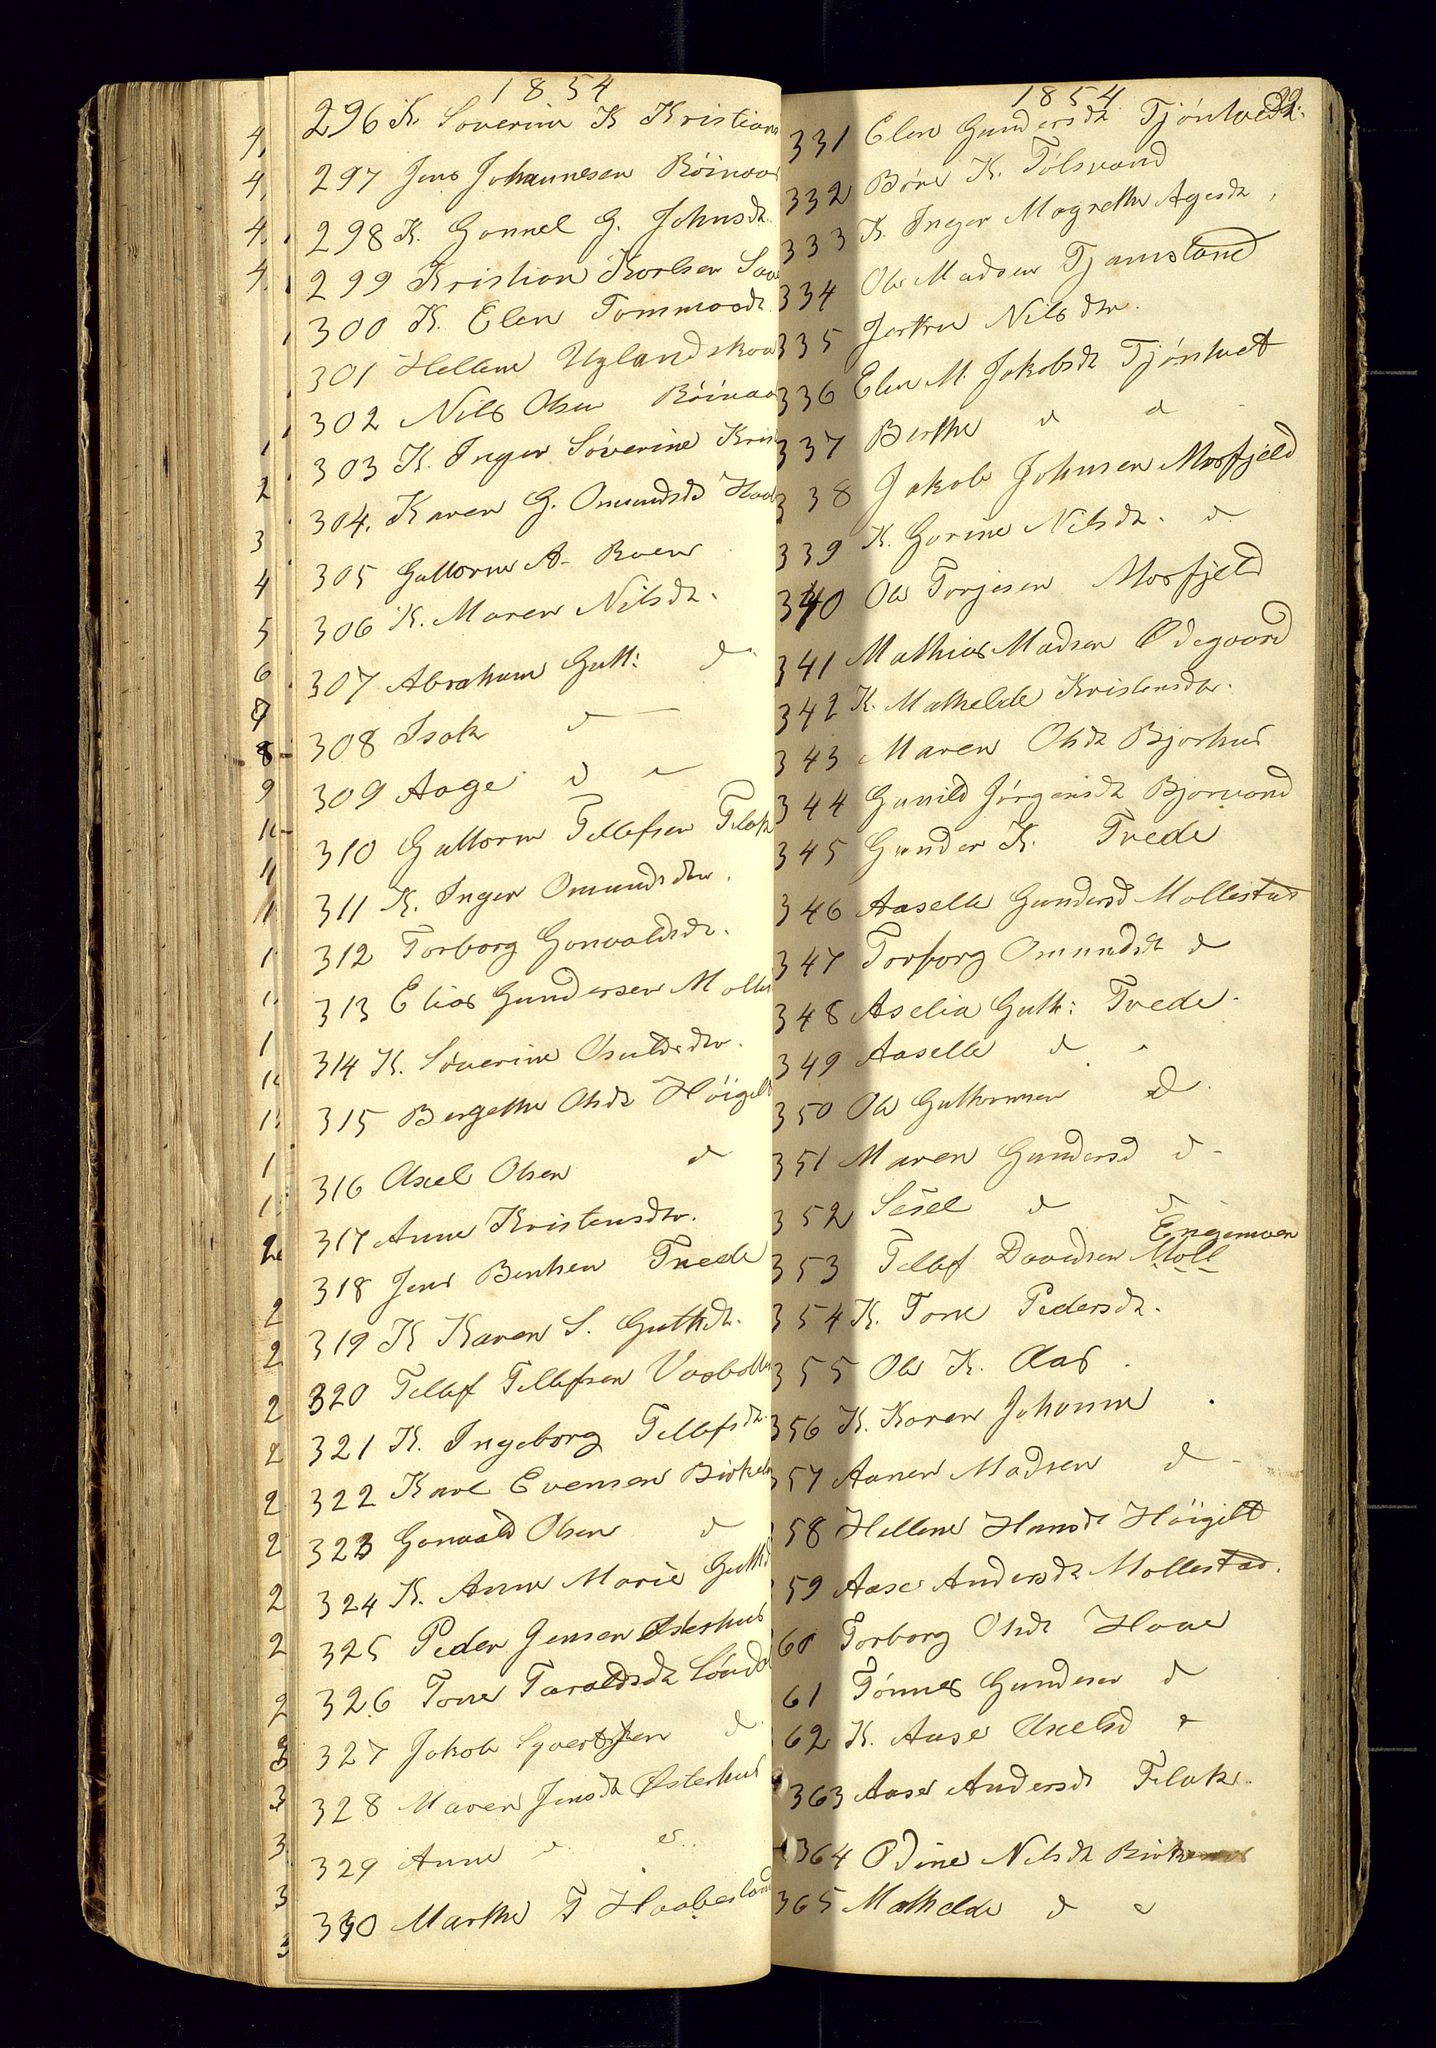 1854
296 K. Soverine K Kristians
297 Jens Johannesen Röinaas
298 K. Gonnel G. Johnsdt.
299 Kristian Karlsen
300 K. Elen Tommasdt
301 Hellene Uglandskaa
302 Nils Olsen Röinaa
303 K. Inger Söverine Kris
304. Karen G. Omundsdt Haa
305 Guttorm A. Roen
306 K. Maren Nilsdt.
307 Abraham Gutt: d
308 Isak d —
309 Aage d —
310 Guttorm Tellefsen Flak
311 K. Inger Omundsdtr.
312 Torborg Gonvaldsdt.
313 Elias Gundersen Molles
314 K. Söverine Osuldsdtr.
315 Bergethe Olsdt Höigilt
316 Axel Olsen d
317 Anne Kristensdtr.
318 Jens Bentsen Tvede
319 K Karen S. Guthdt.
320 Tellef Tellefsen Vasbotten
321 K. Ingeborg Tellefsdt.
322 Karl Evensen Birkeln
323 Gonvald Olsen d
324 K. Anne Marie Guthd
325 Peder Jensen Østerhus
326 Tone Taraldsdt Lönd
327 Jakob Syvertsen d
328 Maren Jensdt Østerhus
329 Anne d d
330 Marthe T Haabesland
1854
331 Elen Gundersdt Tjöntvedt.
332 Böre K. Tölsvand
333 K. Inger Magrethe Agesdt,
334 Ole Madsen Tjamsland
335 Nilsdtr.
336 Elen M. Jakobsdt Tjöntvet
337 Berthe d d
338 Jakob Johnsen Mosfjeld
339 K. Gorine Nilsdt. d
340 Ole Torjesen Mosfjeld
341 Mathias Madsen Ødegaard
342 K. Mathelde Kristensdtr.
343 Maren Olsdt Bjorhus
344 Gunild Jörgensdt Bjorvand
345 Gunder K. Tvede
346 Aaselle Gundersd Mollestad
347 Torborg Omundsdt d
348 Aselia Guth: Tvede.
349 Aaselle d
350 Ole Guthormsen D.
351 Maren Gundersd d
352 Sesel d d
Engemoen
353 Tellef Davidsen Moll
354 K. Tone Pedersdt.
355 Ole K. Aas.
356 K. Karen Johanne
57 Aanen Madsen d
58 Hellene Hansdt Höigilt
59 Aase Andersdt Mollestad.
60 Torborg Olsdt Haae
61 Tönnes Gundersen d
62 K. Aase Axelsd d
363 Aase Andersdt Flak.
364 Odine Nilsdt
365 Mathelde d d